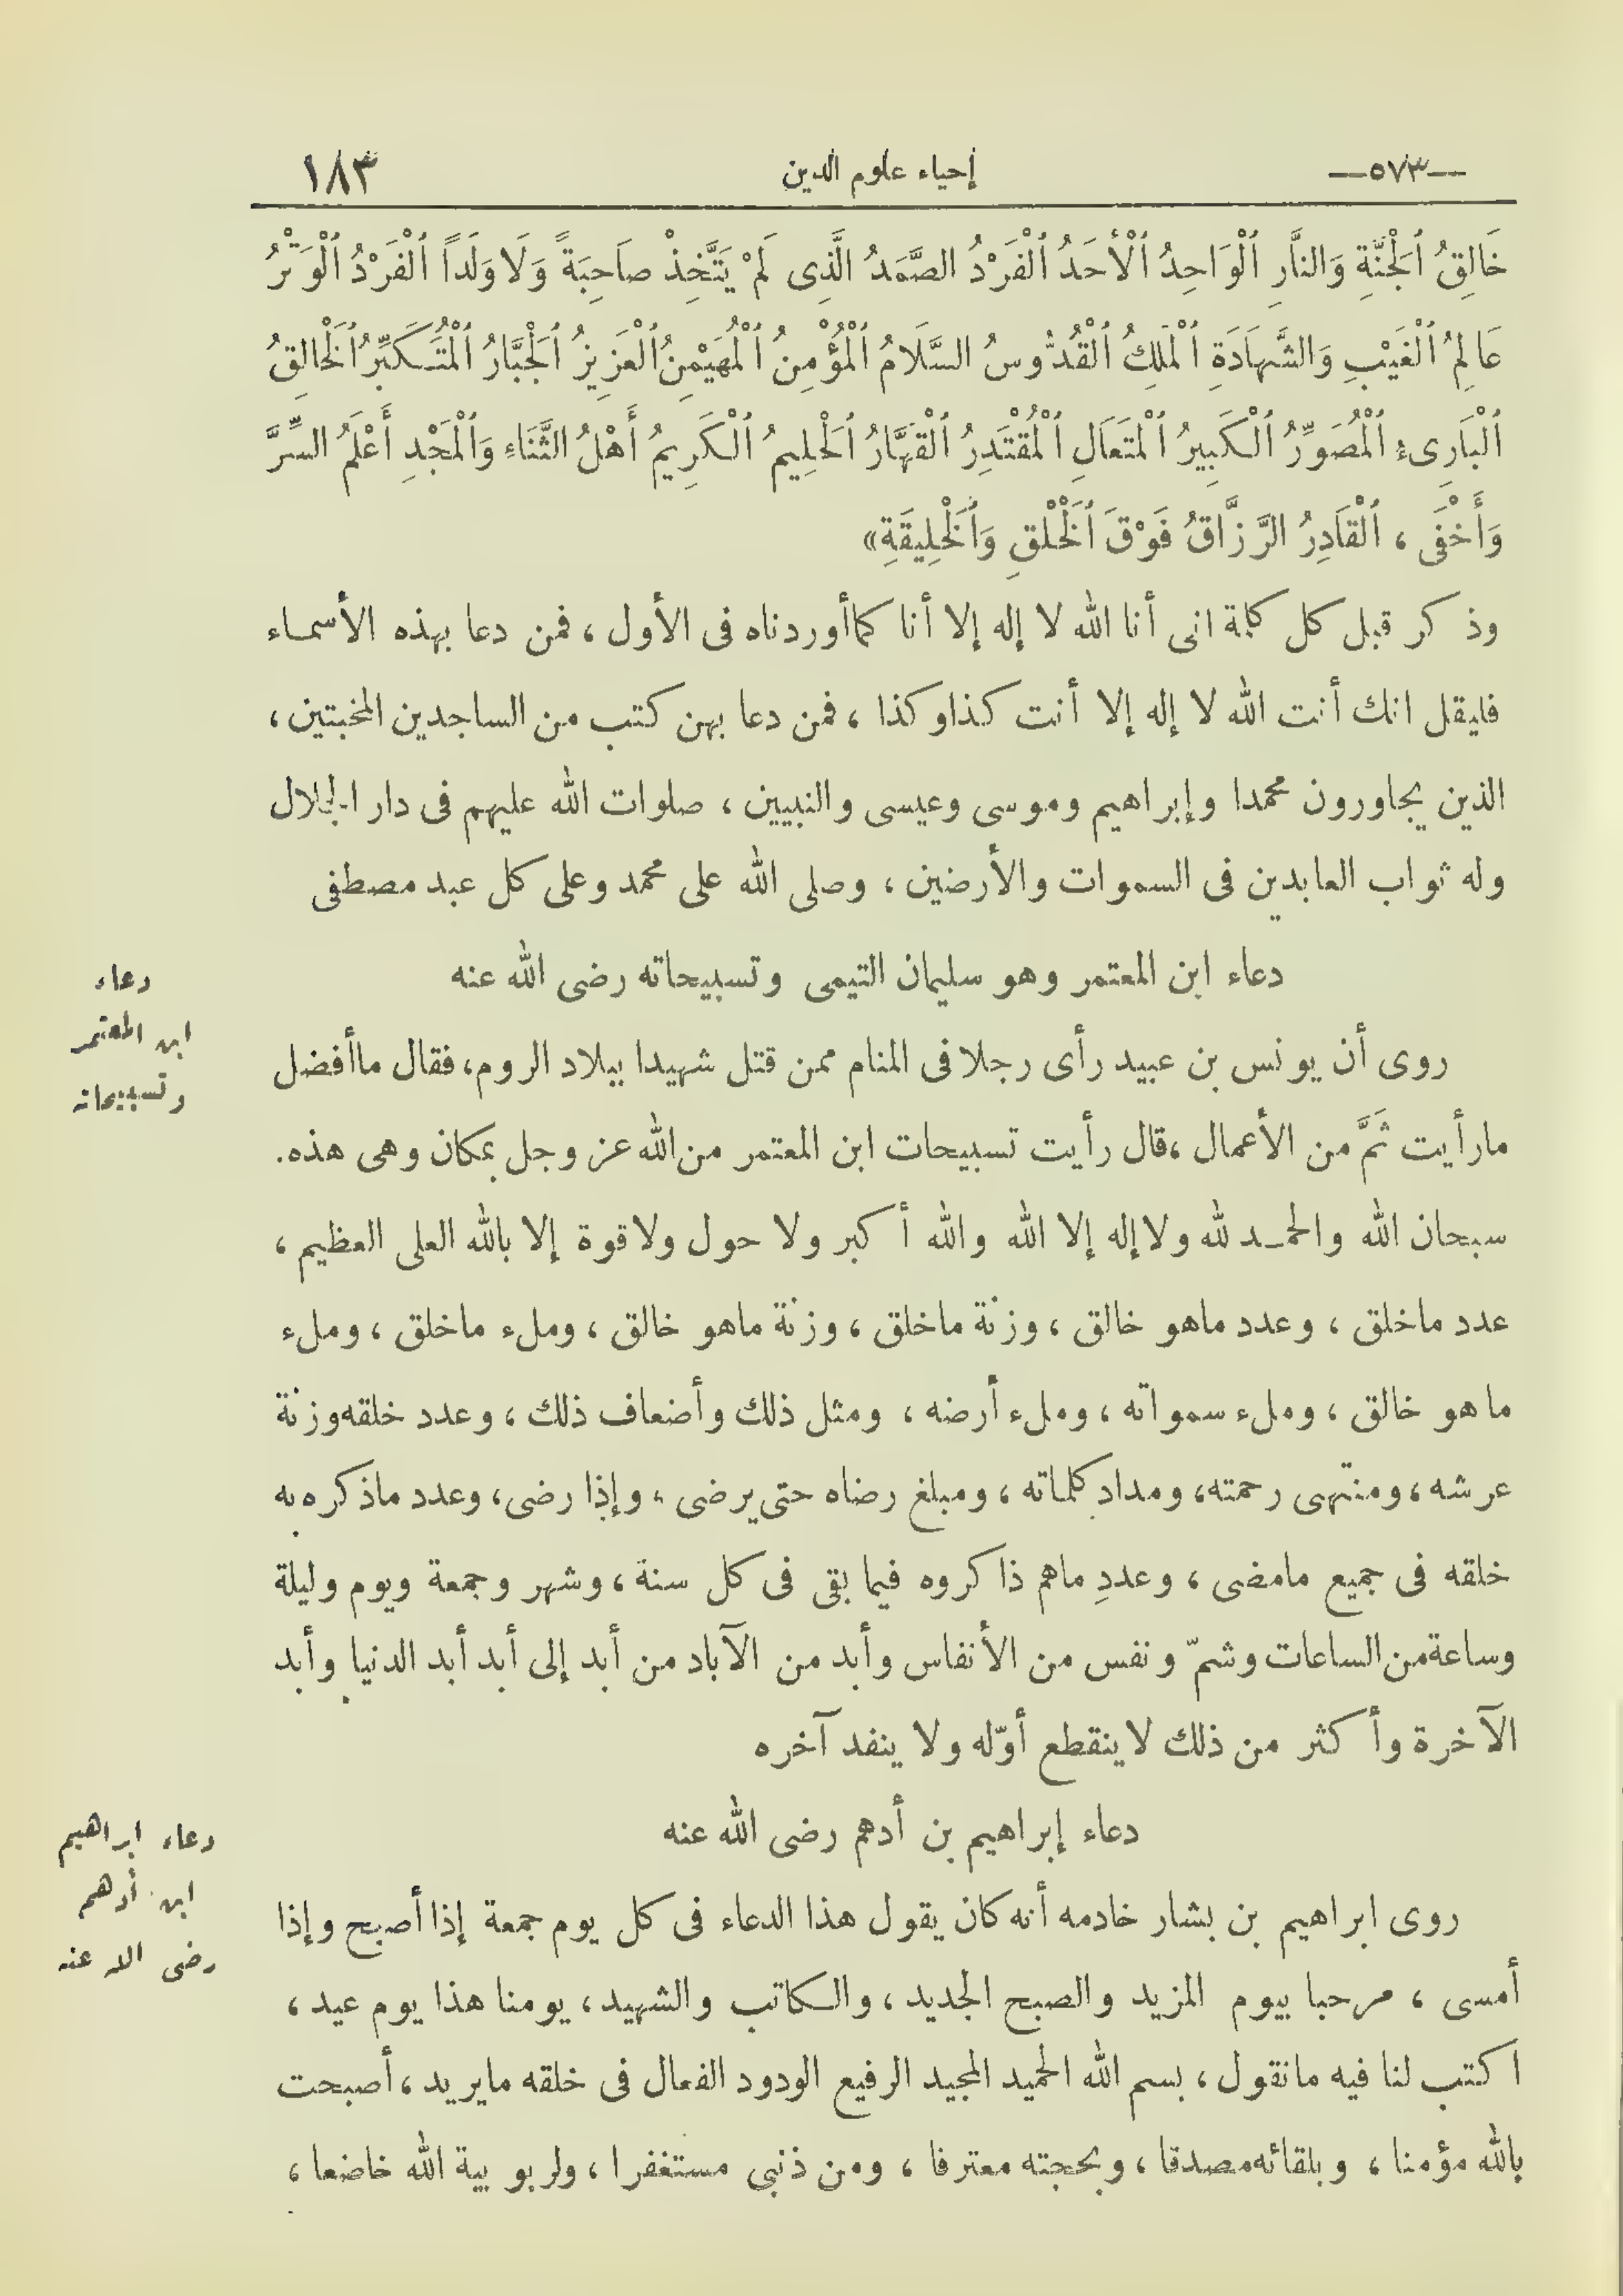 —٥٧٣— إحياء علوم الدين ١٨٣
خَالِقُ ٱلْجَنَّةِ وَالنَّارِ ٱلْوَاحِدُ ٱلْأَحَدُ ٱلْفَرْدُ الصَّمَدُ الَّذِى لَمْ يَتَّخِذْ صَاحِبَةً وَلَا وَلَداً ٱلْفَرْدُ ٱلْوَتْرُ
عَالِمُ ٱلْغَيْبِ وَالشَّهَادَةِ ٱلْمَلِكُ ٱلْقُدُّوسُ السَّلَامُ ٱلْمُؤْمِنُ ٱلْمُهَيْمِنُ ٱلْعَزِيزُ ٱلْجَبَّارُ ٱلْمُتَكَبِّرُ ٱلْخَالِقُ
ٱلْبَارِىءُ ٱلْمُصَوِّرُ ٱلْكَبِيرُ ٱلْمُتَعَالِ ٱلْمُقْتَدِرُ ٱلْقَهَّارُ ٱلْحَلِيمُ ٱلْكَرِيمُ أَهْلُ الثَّنَاءِ وَٱلْمَجْدِ أَعْلَمُ السِّرَّ
وَأَخْفَى ، ٱلْقَادِرُ الرَّزَّاقُ فَوْقَ ٱلْخَلْقِ وَٱلْخَلِيقَةِ»
وذكر قبل كل كلمة انى أنا الله لا إله إلا أنا كما أوردناه فى الأول ، فمن دعا بهذه الأسماء
فليقل انك أنت الله لا إله إلا أنت كذا وكذا ، فمن دعا بهن كتب من الساجدين المخبتين ،
الذين يجاورون محمدا وإبراهيم وموسى وعيسى والنبيين ، صلوات الله عليهم فى دار الجلال
وله ثواب العابدين فى السموات والأرضين ، وصلى الله على محمد وعلى كل عبد مصطفى
دعاء ابن المعتمر وهو سليمان التيمى وتسبيحاته رضى الله عنه
دعاء
ابن المعتمر
وتسبيحاته
روى أن يونس بن عبيد رأى رجلا فى المنام ممن قتل شهيدا ببلاد الروم، فقال ما أفضل
ما رأيت ثَمَّ من الأعمال ، قال رأيت تسبيحات ابن المعتمر من الله عز وجل بمكان وهى هذه.
سبحان الله والحمد لله ولا إله إلا الله والله أكبر ولا حول ولا قوة إلا بالله العلى العظيم ،
عدد ما خلق ، وعدد ما هو خالق ، وزنة ما خلق ، وزنة ما هو خالق ، وملء ما خلق ، وملء
ما هو خالق ، وملء سمواته ، وملء أرضه ، ومثل ذلك وأضعاف ذلك ، وعدد خلقه وزنة
عرشه ، ومنتهى رحمته، ومداد كلماته ، ومبلغ رضاه حتى يرضى ، وإذا رضى، وعدد ما ذكره به
خلقه فى جميع ما مضى ، وعددِ ما هم ذاكروه فيما بقى فى كل سنة ، وشهر وجمعة ويوم وليلة
وساعة من الساعات وشمّ ونفس من الأنفاس وأبد من الآباد من أبد إلى أبد أبد الدنيا وأبد
الآخرة وأكثر من ذلك لا ينقطع أوّله ولا ينفد آخره
دعاء إبراهيم بن أدهم رضى الله عنه
دعاء ابراهيم
ابن أدهم
رضى الله عنه
روى ابراهيم بن بشار خادمه أنه كان يقول هذا الدعاء فى كل يوم جمعة إذا أصبح وإذا
أمسى ، مرحبا بيوم المزيد والصبح الجديد ، والكاتب والشهيد ، يومنا هذا يوم عيد ،
اكتب لنا فيه ما نقول ، بسم الله الحميد المجيد الرفيع الودود الفعال فى خلقه ما يريد ، أصبحت
بالله مؤمنا ، وبلقائه مصدقا ، وبحجته معترفا ، ومن ذنبى مستغفرا ، ولربوبية الله خاضعا ،